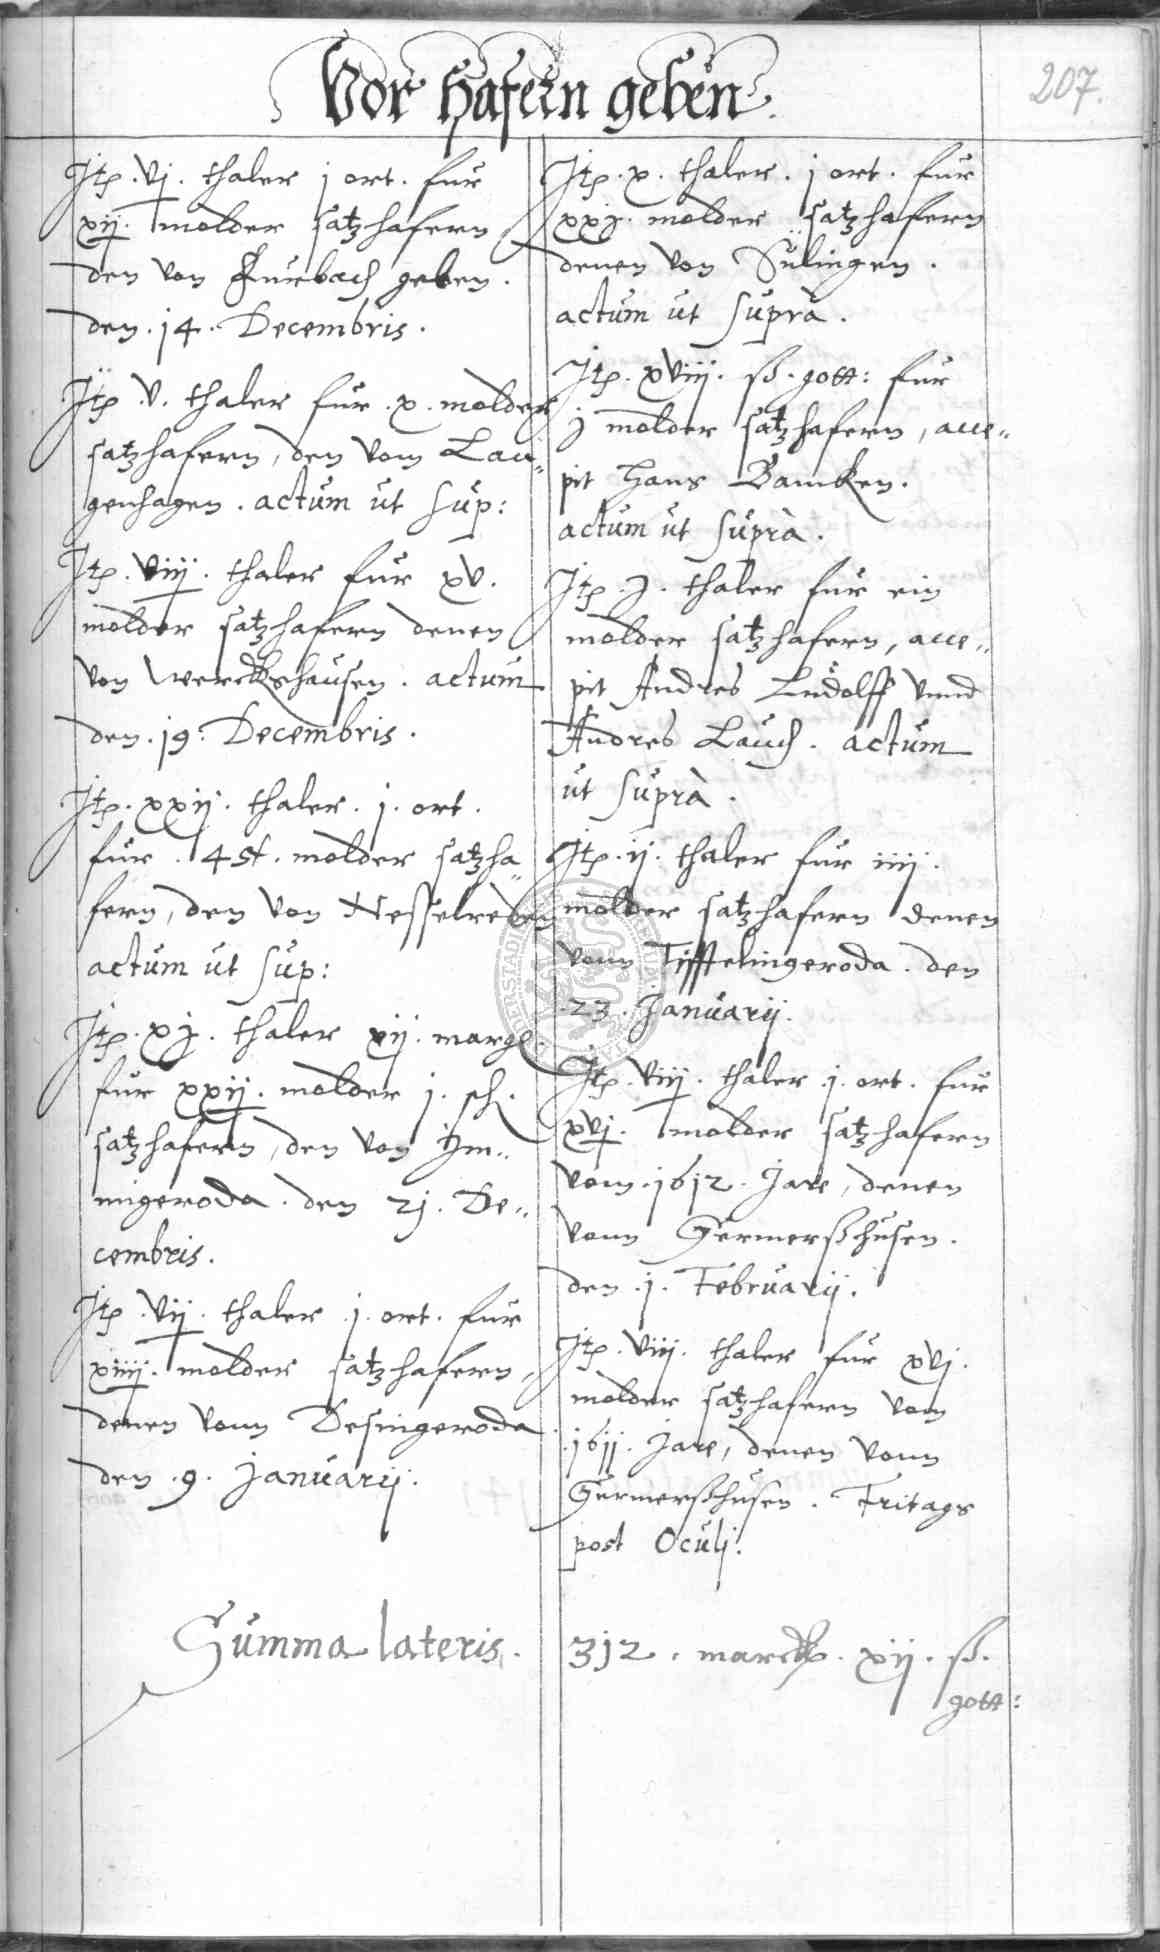 Vor Hafern geben
207.
Itp. vj. thaler j ort. fur
xij. molder satzhafern
den von Furbach geben.
den .14. Decembris.
Itp v. thaler fur .x. molder
satzhafern, den vom Lan„
genhagen. actum ut sup:
Itp. viij. thaler fur xv.
molder satzhafern denen
von Werckshausen. actum
den .19. Decembris.
Itp. xxij. thaler. j. ort.
fur . molder satzha„
fern, den von Nesselreden
actum ut sup:
Itp. xj. thaler vij. margl.
fur xxij. molder j. sch.
satzhafern, den von Im„
mingeroda. den 21. De„
cembris.
Itp. vij. thaler .j. ort. fur
xiiij. molder satzhafern,
denen vonn Desingeroda
den .9. Januarij.
Itp. x. thaler. j ort. fur
xxj. molder satzhafern
denen von Sülingen.
actum ut suprà.
Itp. xviij. ß. gott: fur
j molder satzhafern, acce„
pit Hans Bamken.
actum ut suprà.
Itp. j. thaler fur ein
molder satzhafern, acce„
pit Andres Ludolff vnnd
Andres Lauch. actum
ut suprà.
Itp. ij. thaler fur iiij.
molder satzhafern denen
vonn Tifftelingeroda. den
.23. Januarij.
Itp. viij. thaler .j. ort. fur
xvj. molder satzhafern
vom .1612. Jare, denen
vonn Germerßhusen.
den .j. Februarij.
Itp. viij. thaler fur xvj.
molder satzhafern vom
.1611. Jare, denen vonn
Germerßhusen. Fritags
post Oculj.
Summa lateris. 312. marck. xij. ß.
gott: